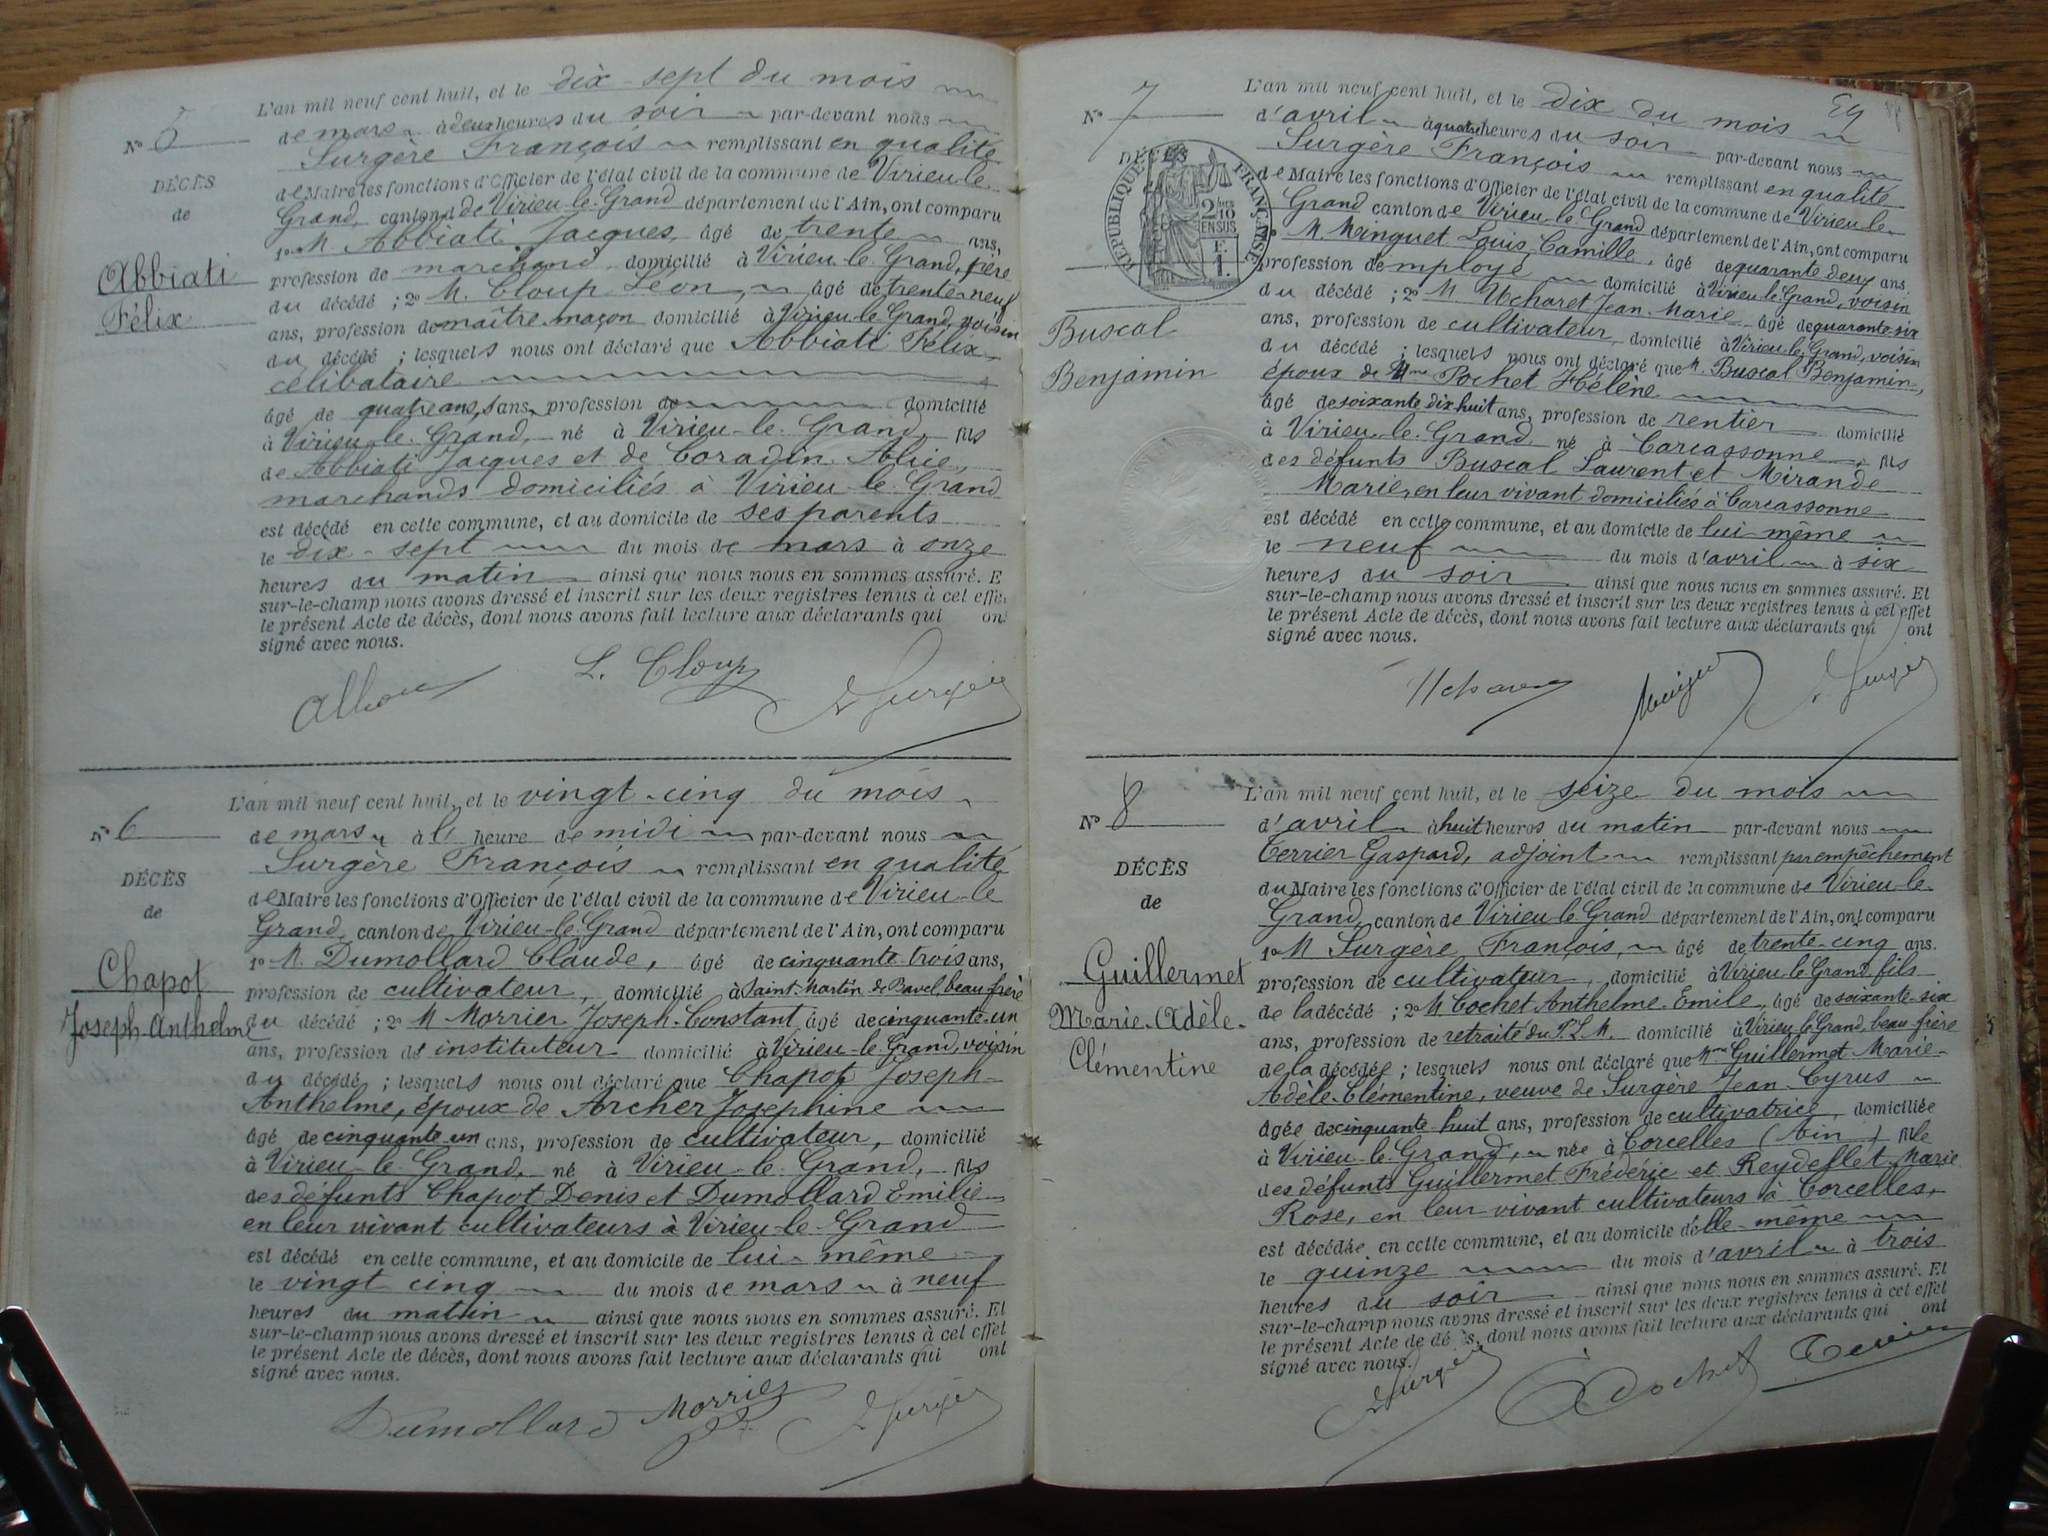 L'an mil neuf cent huit, et le dix-sept du mois
N° 5
de mars à deux heures du soir par-devant nous
Surgère François remplissant en qualité
DÉCÈS
de Maire les fonctions d'Officier de l'état civil de la commune de Virieu-le-
de
Grand, canton de Virieu-le-Grand département de l'Ain, ont comparu
1° M. Abbiati Jacques, âgé de trente ans,
Abbiati
profession de marchand domicilié à Virieu-le-Grand, père
Félix
du décédé ; 2° M. Cloup Léon, âgé de trente-neuf
ans, profession de maître-maçon domicilié à Virieu-le-Grand, voisin
du décédé ; lesquels nous ont déclaré que Abbiati Félix
célibataire
âgé de quatre ans, sans profession de domicilié
à Virieu-le-Grand, né à Virieu-le-Grand, fils
de Abbiati Jacques et de Coradin Alice,
marchands domiciliés à Virieu-le-Grand
est décédé en cette commune, et au domicile de ses parents
le dix-sept du mois de mars à onze
heures du matin ainsi que nous nous en sommes assuré. E
sur-le-champ nous avons dressé et inscrit sur les deux registres tenus à cet effe
le présent Acte de décès, dont nous avons fait lecture aux déclarants qui on
signé avec nous.
L. Cloup
Surgère
L'an mil neuf cent huit, et le vingt-cinq du mois
N° 6
de mars à la heure de midi par-devant nous
Surgère François remplissant en qualité
DÉCÈS
de Maire les fonctions d'Officier de l'état civil de la commune de Virieu-le
de
Grand, canton de Virieu-le-Grand département de l'Ain, ont comparu
1° M. Dumollard Claude, âgé de cinquante-trois ans,
Chapot
profession de cultivateur, domicilié à Saint-Martin de Bavel, beau-frère
Joseph-Anthelme
du décédé ; 2° M. Morrier Joseph-Constant, âgé de cinquante-un
ans, profession de instituteur domicilié à Virieu-le-Grand, voisin
du décédé ; lesquels nous ont déclaré que Chapot Joseph-
Anthelme, époux de Archer Josephine
âgé de cinquante-un ans, profession de cultivateur, domicilié
à Virieu-le-Grand, né à Virieu-le-Grand, fils
des défunts Chapot Denis et Dumollard Emilie
en leur vivant cultivateurs à Virieu-le-Grand
est décédé en cette commune, et au domicile de lui-même
le vingt cinq du mois de mars à neuf
heures du matin ainsi que nous nous en sommes assuré. Et
sur-le-champ nous avons dressé et inscrit sur les deux registres tenus à cet effet
le présent Acte de décès, dont nous avons fait lecture aux déclarants qui ont
signé avec nous.
Dumollard Morrier Surgère
L'an mil neuf cent huit, et le dix du mois
N° 7
d'avril à quatre heures du soir par-devant nous
Surgère François remplissant en qualité
DÉCÈS
RÉPUBLIQUE FRANÇAISE
2/10 EN SUS
F. 1.
de Maire les fonctions d'Officier de l'état civil de la commune de Virieu-le-
Grand canton de Virieu-le-Grand département de l'Ain, ont comparu
M. Minguet Louis Camille, âgé de quarante deux ans
profession de mployé domicilié à Virieu-le-Grand, voisin
du décédé ; 2° M Ucharet Jean-Marie âgé de quarante-six
Buscal
ans, profession de cultivateur domicilié à Virieu-le-Grand, voisin
Benjamin
du décédé ; lesquels nous ont déclaré que M. Buscal Benjamin,
époux de Mme Pochet Hélène
âgé de soixante dix huit ans, profession de rentier domicilié
à Virieu-le-Grand né à Carcassonne, fils
des défunts Buscal Laurent et Mirande
Marie, en leur vivant domiciliés à Carcassonne
est décédé en cette commune, et au domicile de lui-même
le neuf du mois d'avril à six
heures du soir ainsi que nous nous en sommes assuré. Et
sur-le-champ nous avons dressé et inscrit sur les deux registres tenus à cet effet
le présent Acte de décès, dont nous avons fait lecture aux déclarants qui ont
signé avec nous.
Surgère
L'an mil neuf cent huit, et le seize du mois
N° 8
d'avril à huit heures du matin par-devant nous
Terrier Gaspard, adjoint remplissant par empêchement
DÉCÈS
du Maire les fonctions d'Officier de l'état civil de la commune de Virieu-le-
de
Grand, canton de Virieu-le-Grand département de l'Ain, ont comparu
1° M Surgère François, âgé de trente-cinq ans.
Guillermet
profession de cultivateur, domicilié à Virieu-le-Grand, fils
Marie-Adèle-
de la décédé ; 2° M Cochet Anthelme-Emile, âgé de soixante-six
Clémentine
ans, profession de retraité du P.L.M. domicilié à Virieu-le-Grand, beau-frère
de la décédée ; lesquels nous ont déclaré que Mme Guillermet Marie-
Adèle-Clémentine, veuve de Surgère Jean-Cyrus
âgée de cinquante-huit ans, profession de cultivatrice, domiciliée
à Virieu-le-Grand, née à Corcelles (Ain) fille
des défunts Guillermet Fréderic et Reydellet Marie
Rose, en leur vivant cultivateurs à Corcelles,
est décédée en cette commune, et au domicile d'elle-même
le quinze du mois d'avril à trois
heures du soir ainsi que nous nous en sommes assuré. Et
sur-le-champ nous avons dressé et inscrit sur les deux registres tenus à cet effet
le présent Acte de décès, dont nous avons fait lecture aux déclarants qui ont
signé avec nous.
Surgère Cochet Terrier